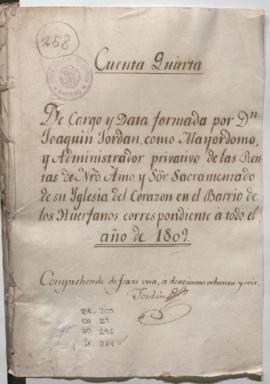 258
Cuenta Quinta
De Cargo y Data formada por Dn
Joaquin Jordan, como Mayordomo,
y Administrador privativo de las Ren
tas de Nro. Amo, y Sor. Sacramentado
de su Yglesia del Corazon en el Barrio de
los Huerfanos correspondiente à todo el
año de 1809.
Comprehende de foxas una, a doscientas ochenta y seis.
Jordán